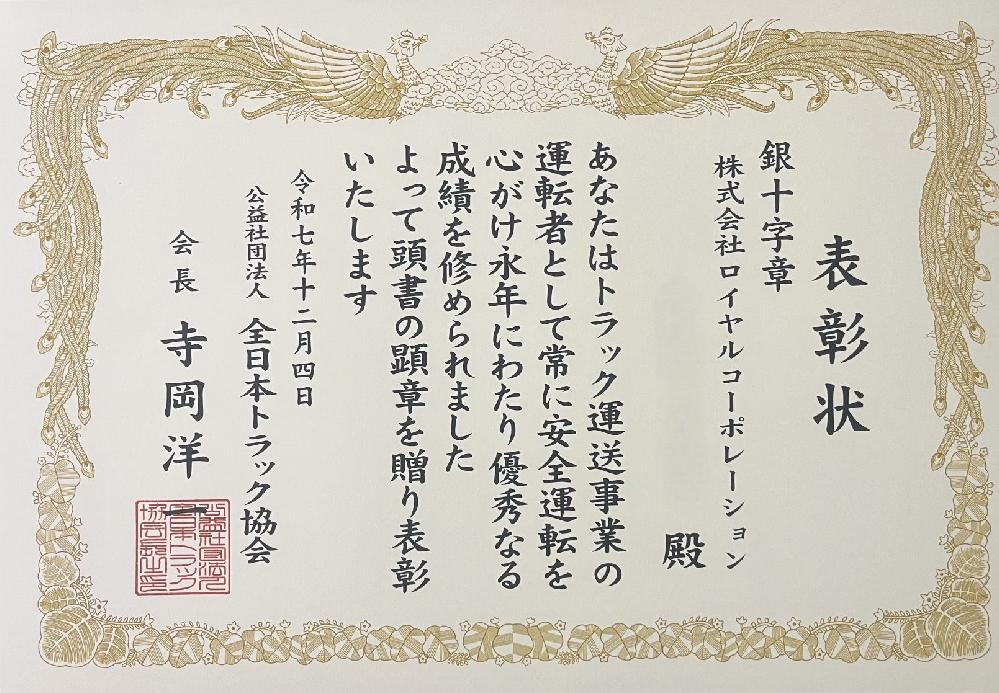 表彰状
銀十字章
株式会社ロイヤルコーポレーション
殿
あなたはトラック運送事業の
運転者として常に安全運転を
心がけ永年にわたり優秀なる
成績を修められました
よって頭書の顕章を贈り表彰
いたします
令和七年十二月四日
公益社団法人 全日本トラック協会
会長 寺岡洋一